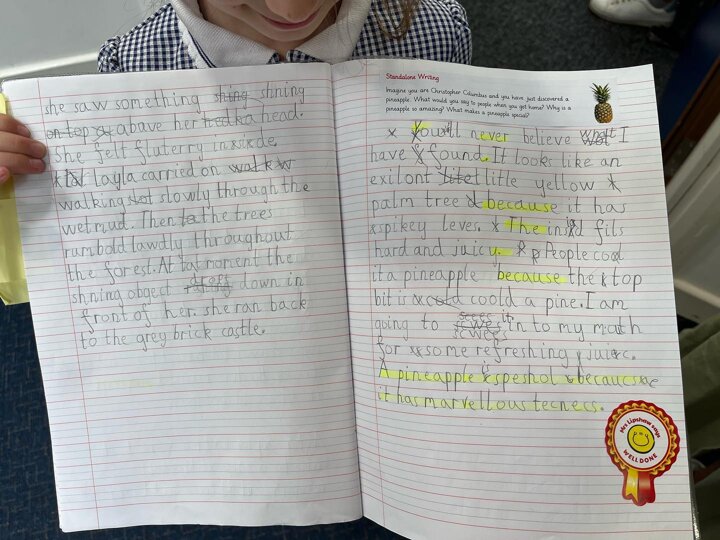 she saw something shing shning
on top of abave her hedka head.
She felt fluterry insisde.
layla carried on walk w
walking slowly through the
wet mud. Then the trees
rumbold lawdly throughout
the forest. At tat morent the
shning obgect droft down in
front of her. she ran back
to the grey brick castle.
Standalone Writing
Imagine you are Christopher Columbus and you have just discovered a
pineapple. What would you say to people when you get home? Why is a
pineapple so amazing? What makes a pineapple special?
Youll never believe what I
have found. It looks like an
exilont litel litle yellow
palm tree because it has
spikey leves. The insid fils
hard and juicy. People cool
it a pineapple because the top
bit is cold coold a pine. I am
going to scwes it in to my muth
for some refreshing juic.
A pineapple is speshol because
it has marvellous tecnecs.
Mrs Lipshaw says
WELL DONE